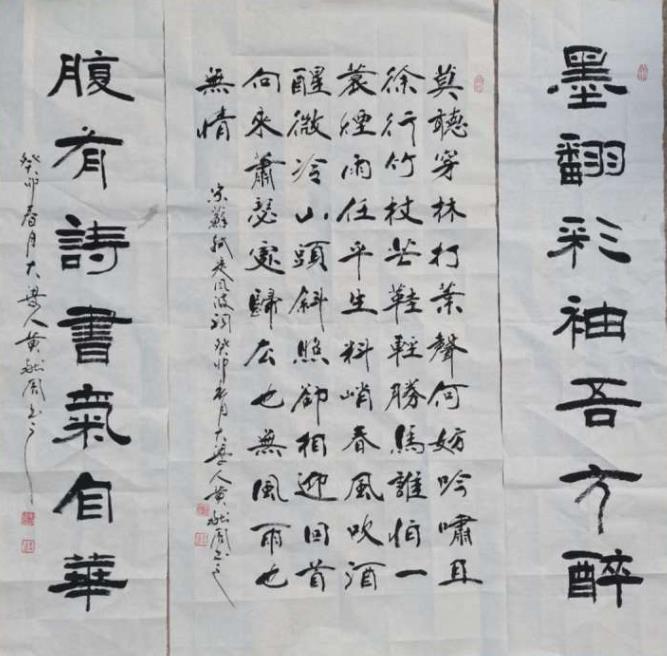 墨翻彩袖吾方醉
莫聽穿林打葉聲何妨吟嘯且
徐行竹杖芒鞋輕勝馬誰怕一
蓑煙雨任平生料峭春風吹酒
醒微冷山頭斜照卻相迎回首
向來蕭瑟處歸去也無風雨也
無情
宋蘇軾定風波詞癸卯春月大梁人黃周書之
腹有詩書氣自華
癸卯春月大梁人黃周書之